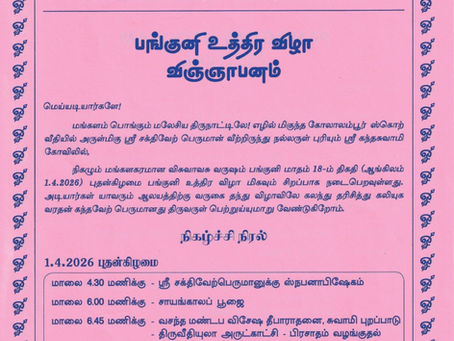 பங்குனி உத்திர விழா
விஞ்ஞாபனம்
மெய்யடியார்களே!
மங்களம் பொங்கும் மலேசிய திருநாட்டிலே! எழில் மிகுந்த கோலாலம்பூர் ஸ்கொற்
வீதியில் அருள்மிகு ஸ்ரீ சக்திவேற் பெருமான் வீற்றிருந்து நல்லருள் புரியும் ஸ்ரீ கந்தசுவாமி
கோவிலில்,
நிகழும் மங்களகரமான விசுவாவசு வருஷம் பங்குனி மாதம் 18-ம் திகதி (ஆங்கிலம்
1.4.2026) புதன்கிழமை பங்குனி உத்திர விழா மிகவும் சிறப்பாக நடைபெறவுள்ளது.
அடியார்கள் யாவரும் ஆலயத்திற்கு வருகை தந்து விழாவிலே கலந்து தரிசித்து கலியுக
வரதன் கந்தவேற் பெருமானது திருவருள் பெற்றுய்யுமாறு வேண்டுகிறோம்.
நிகழ்ச்சி நிரல்
1.4.2026 புதன்கிழமை
மாலை 4.30 மணிக்கு - ஸ்ரீ சக்திவேற்பெருமானுக்கு ஸ்நபனாபிஷேகம்
மாலை 6.00 மணிக்கு - சாயங்காலப் பூஜை
மாலை 6.45 மணிக்கு - வசந்த மண்டப விசேஷ தீபாராதனை, சுவாமி புறப்பாடு
- திருவீதியுலா அருட்காட்சி - பிரசாதம் வழங்குதல்